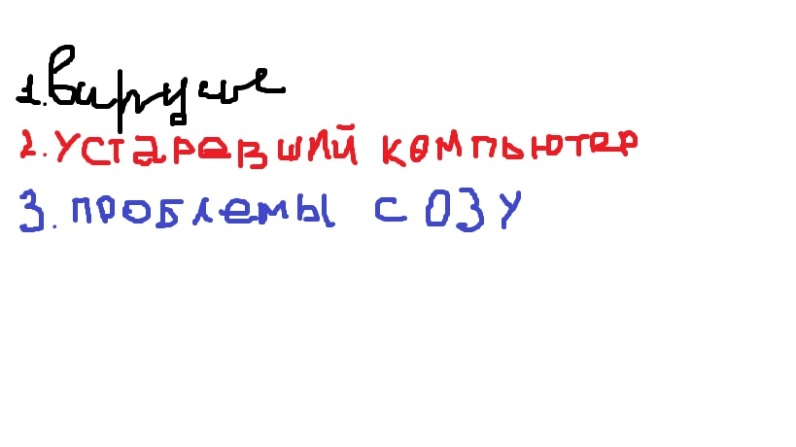 1. Вирусы
2. устаревший компьютер
3. проблемы с ОЗУ